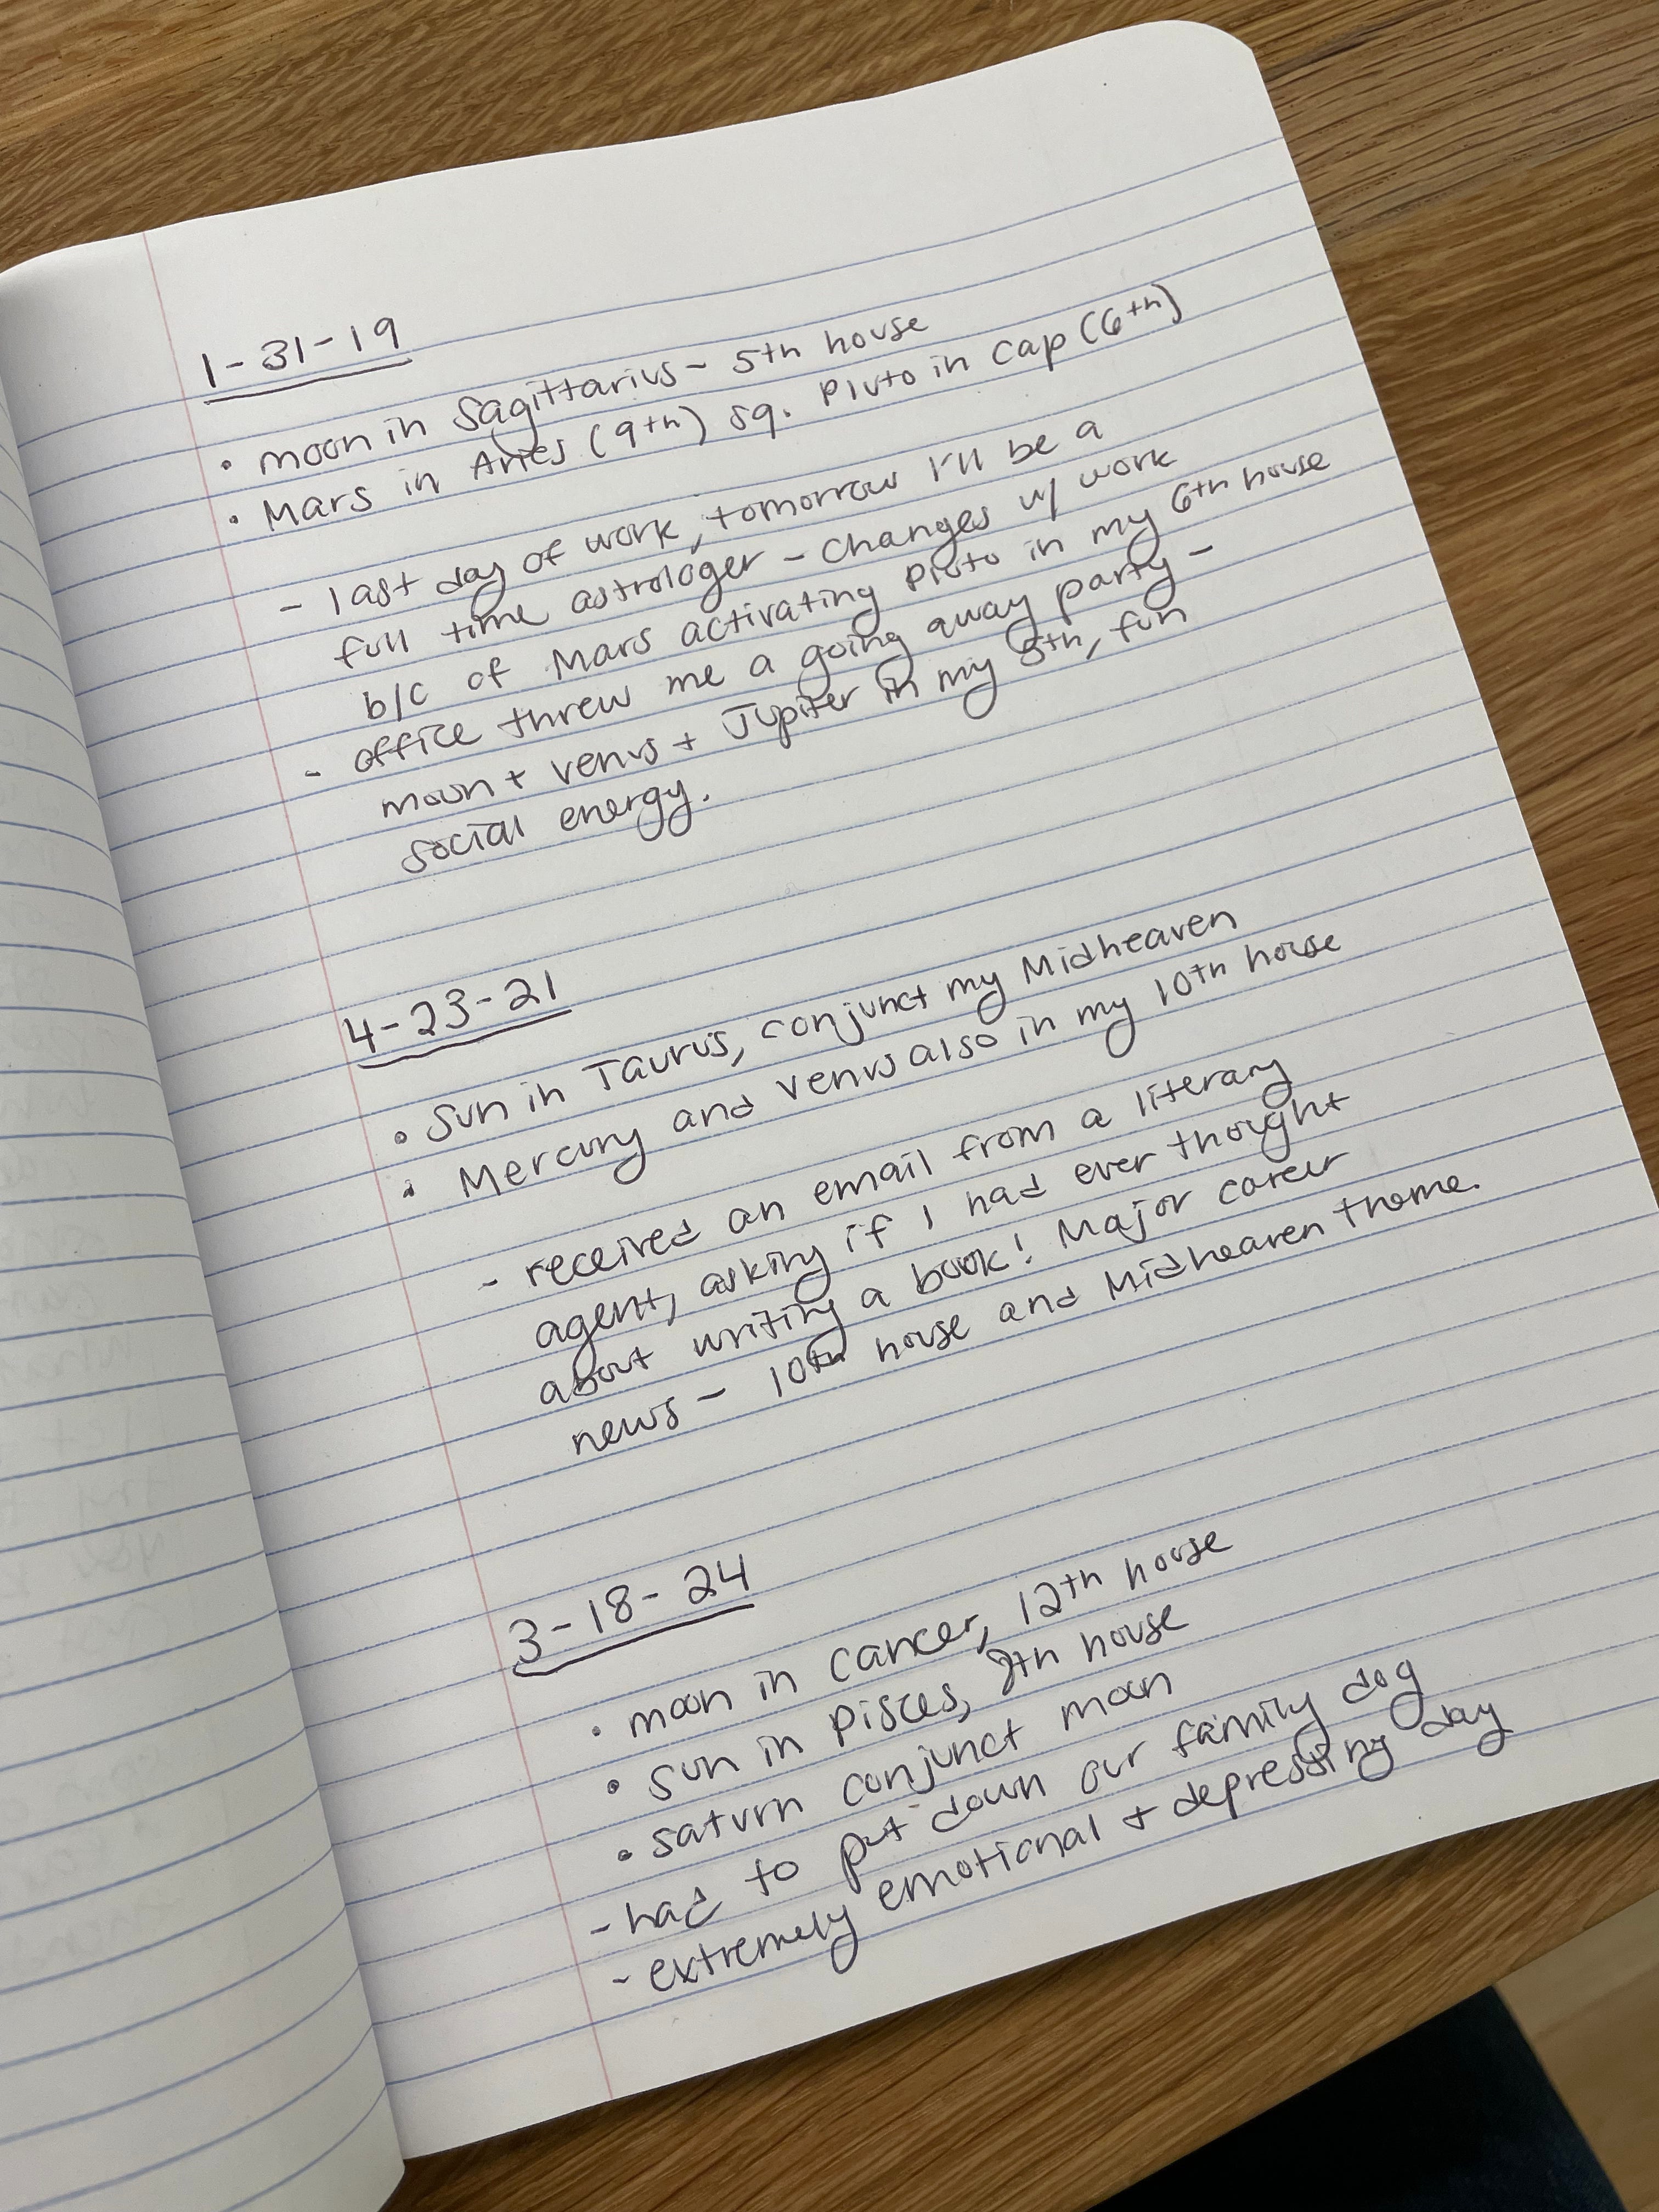 1-31-19
• moon in Sagittarius - 5th house
• Mars in Aries (9th) sq. Pluto in Cap (6th)
- last day of work, tomorrow I'll be a
full time astrologer - changes w/ work
b/c of Mars activating Pluto in my 6th house
- office threw me a going away party -
moon + venus + Jupiter in my 5th, fun
social energy.
4-23-21
• Sun in Taurus, conjunct my Midheaven
• Mercury and venus also in my 10th house
- received an email from a literary
agent, asking if I had ever thought
about writing a book! Major career
news - 10th house and Midheaven theme.
3-18-24
• moon in cancer, 12th house
• sun in Pisces, 8th house
• saturn conjunct moon
- had to put down our family dog
- extremely emotional + depressing day